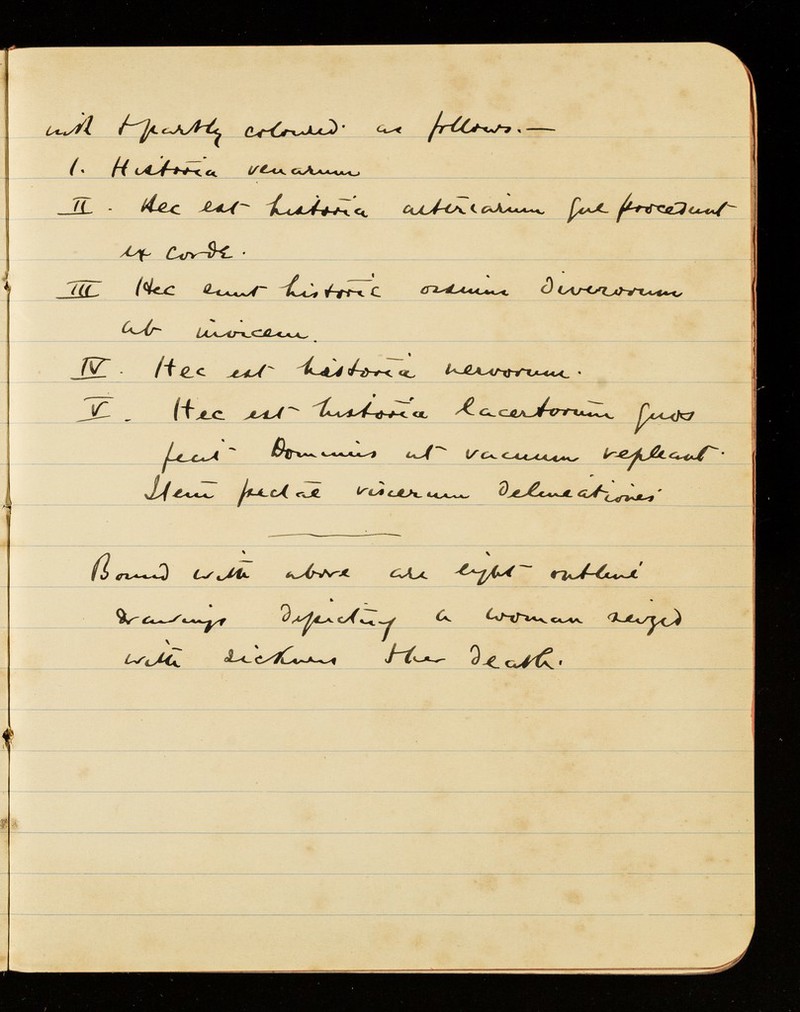 ink & partly coloured as follows.—
I. Historia venarum
II. Hec est historia arteriarum que procedunt
ex corde.
III Hec sunt historie ossium diversorum
ab invicem.
IV. Hec est historia nervorum.
V. Hec est historia lacertorum quos
fecit Dominus ut vacuum repleant.
Item pictae viscerum delineationes
Bound with above are light outline
drawings depicting a woman seized
with sickness & her death.